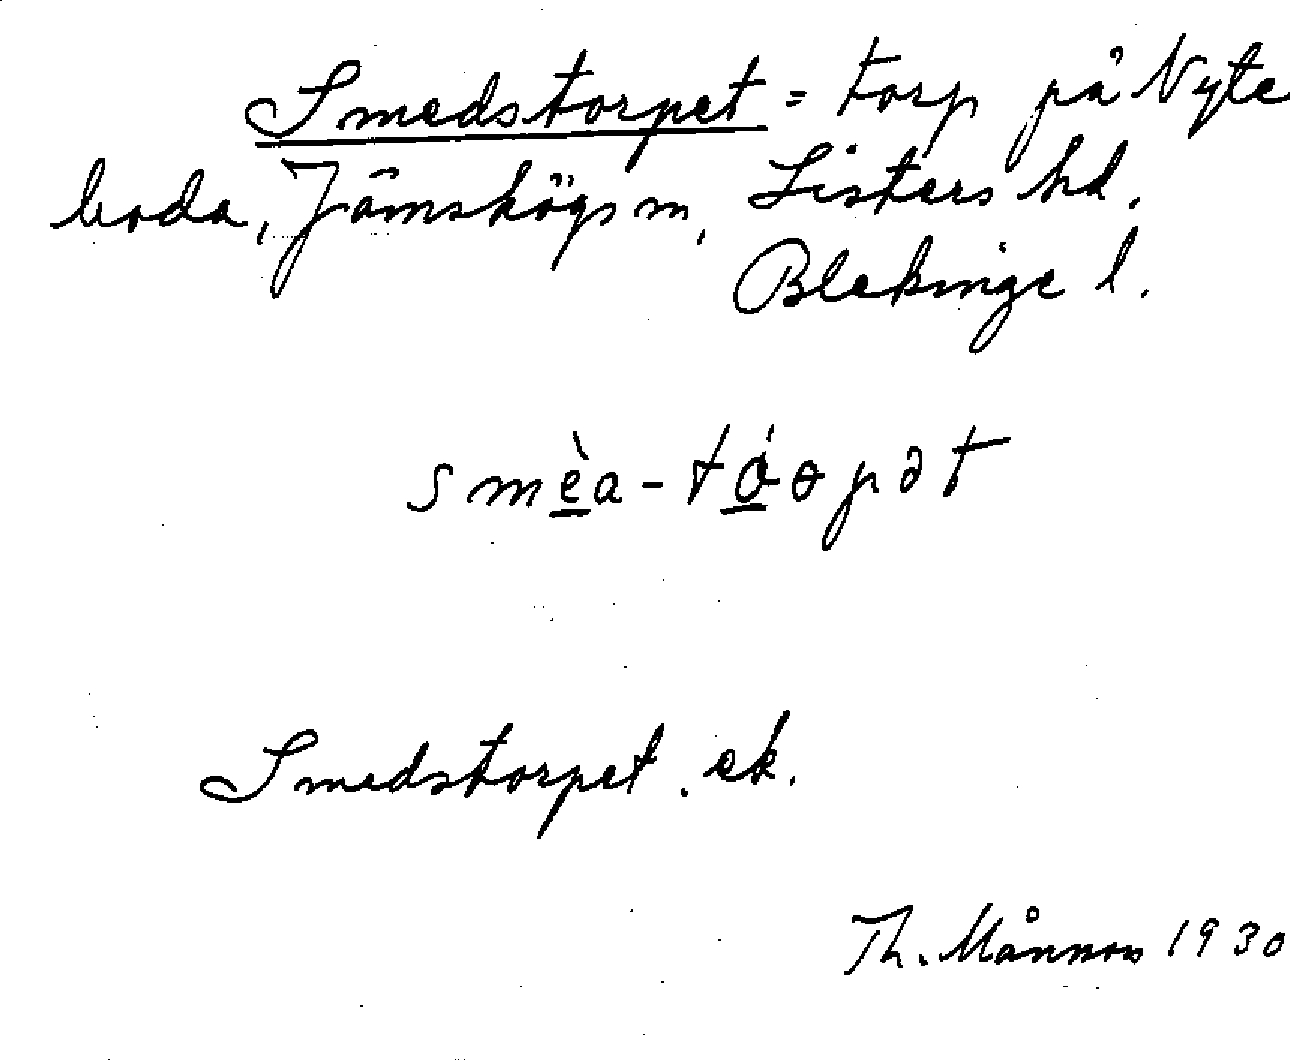 Smedstorpet = torp på Nyte
boda, Jämshögs m, Listers hd.
Blekinge l.
smèa-tóopət
Smedstorpet. ek.
Th. Månsson 1930